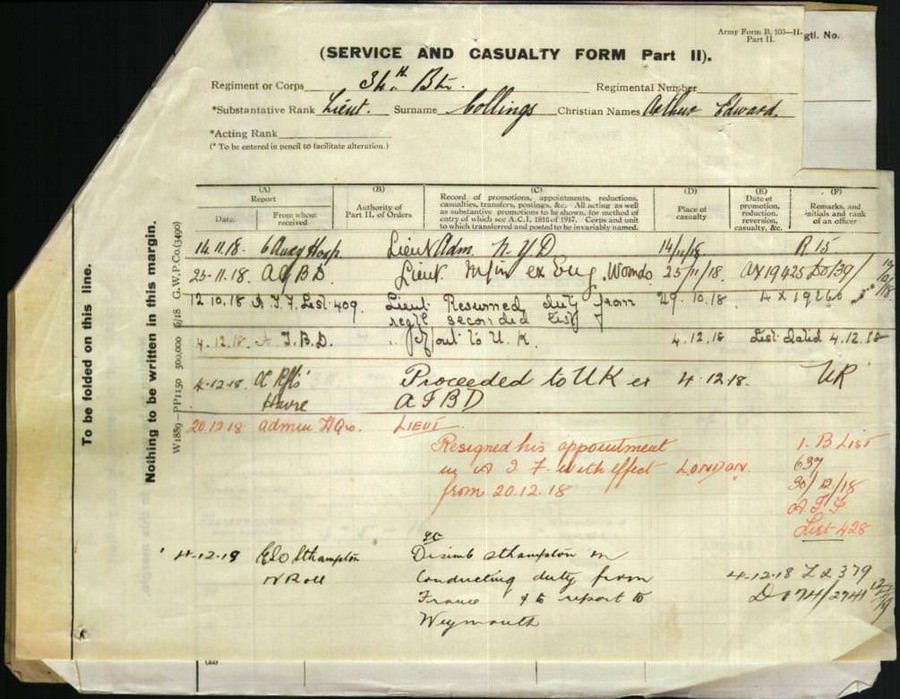 Army Form B. 103—II.
Part II.
gtl. No.
(SERVICE AND CASUALTY FORM Part II).
Regiment or Corps 34th Btn. Regimental Number
*Substantative Rank Lieut. Surname Collings Christian Names Arthur Edward.
*Acting Rank
(* To be entered in pencil to facilitate alteration.)
(A) (B) (C) (D) (E) (F)
Report
Date. From whom received.
Authority of Part II. of Orders
Record of promotions, appointments, reductions, casualties, transfers, postings, &c. All acting as well as substantive promotions to be shown, for method of entry of which see A.C.I. 1816 of 1917. Corps and unit to which transferred and posted to be invariably named.
Place of casualty
Date of promotion, reduction, reversion, casualty, &c.
Remarks, and initials and rank of an officer
14.11.18. 6 Auxy Hosp Lieut Adm. N.Y.D 14/11/18 R 15
25-11.18. Lieut. ex Eng. 25/11/18
12.10.18 A.I.F. List 409. Lieut. Resumed duty from 29.10.18.
regtl seconded list
4.12.18. A.I.B.D. out to U.K. 4.12.18 List dated 4.12.18
4.12.18. Proceeded to UK ex 4.12.18. UK
Havre A I B D
20.12.18 Admin HQrs. LIEUT.
Resigned his appointment 1. B List
in A I F with effect LONDON. 639
from 20.12.18 30/12/18
A.I.F
List 428
4-12-18 Sthampton Disemb Sthampton on
N Roll Conducting duty from 4.12.18 Z 2379
France & to report to
Weymouth
To be folded on this line.
Nothing to be written in this margin.
W1889—PP1150 500,000 6/18 G.W.P.Co.(3490)